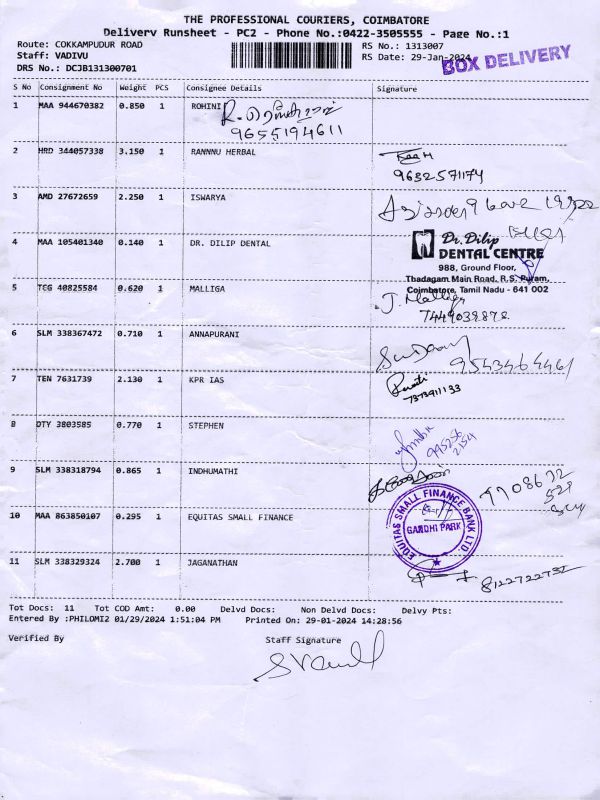 THE PROFESSIONAL COURIERS, COIMBATORE
Delivery Runsheet - PC2 - Phone No.:0422-3505555 - Page No.:1
Route: COKKAMPUDUR ROAD
Staff: VADIVU
DRS No.: DCJB131300701
RS No.: 1313007
RS Date: 29-Jan-2024
BOX DELIVERY
S No Consignment No Weight PCS Consignee Details Signature
1 MAA 944670382 0.850 1 ROHINI
9655194611
2 HRD 344057338 3.150 1 RANNNU HERBAL
9632571174
3 AMD 27672659 2.250 1 ISWARYA
4 MAA 105401340 0.140 1 DR. DILIP DENTAL
Dr. Dilip
DENTAL CENTRE
988, Ground Floor,
Thadagam Main Road, R.S. Puram,
Coimbatore, Tamil Nadu - 641 002
5 TCG 40825584 0.620 1 MALLIGA
J. Malliga
6 SLM 338367472 0.710 1 ANNAPURANI
7 TEN 7631739 2.130 1 KPR IAS
7373911133
8 OTY 3803585 0.770 1 STEPHEN
9 SLM 338318794 0.865 1 INDHUMATHI
10 MAA 863850107 0.295 1 EQUITAS SMALL FINANCE
EQUITAS SMALL FINANCE BANK LTD.
GANDHI PARK
11 SLM 338329324 2.700 1 JAGANATHAN
8122722732
Tot Docs: 11 Tot COD Amt: 0.00 Delvd Docs: Non Delvd Docs: Delvy Pts:
Entered By :PHILOMI2 01/29/2024 1:51:04 PM Printed On: 29-01-2024 14:28:56
Verified By Staff Signature